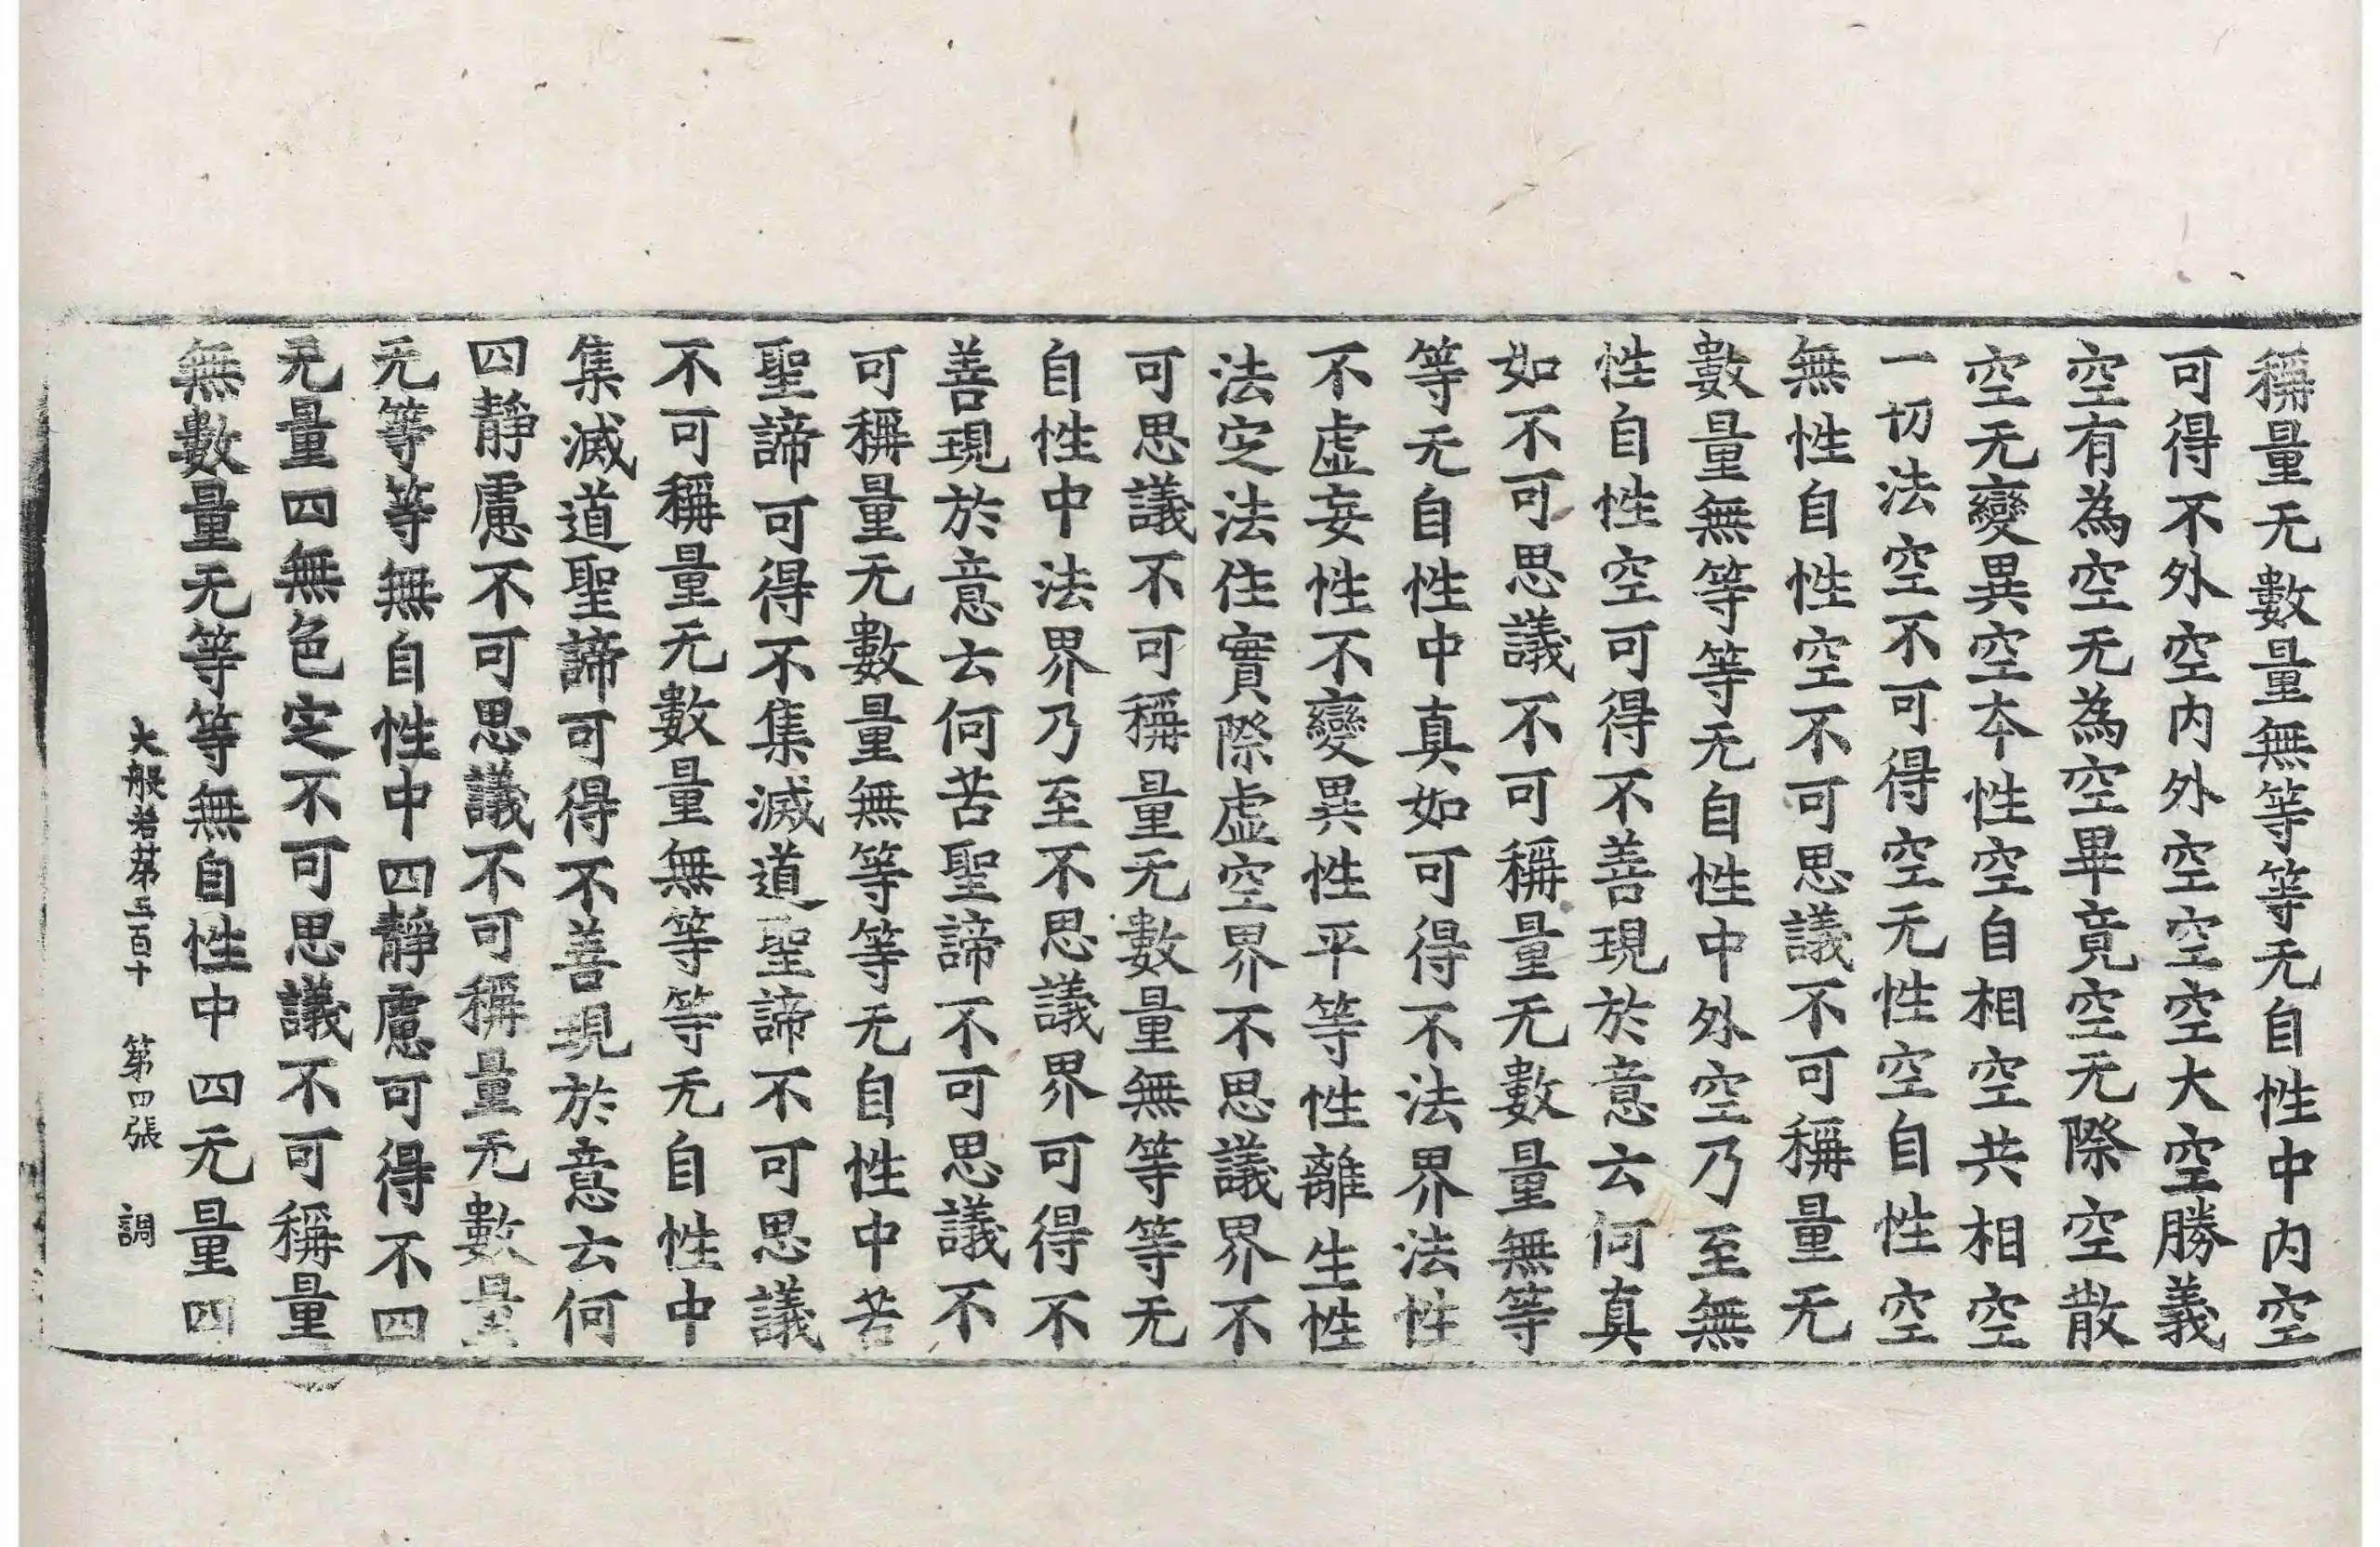 稱量无數量無等等无自性中内空
可得不外空内外空空空大空勝義
空有為空无為空畢竟空无際空散
空无變異空本性空自相空共相空
一切法空不可得空无性空自性空
無性自性空不可思議不可稱量无
數量無等等无自性中外空乃至無
性自性空可得不善現於意云何真
如不可思議不可稱量无數量無等
等无自性中真如可得不法界法性
不虛妄性不變異性平等性離生性
法定法住實際虛空界不思議界不
可思議不可稱量无數量無等等无
自性中法界乃至不思議界可得不
善現於意云何苦聖諦不可思議不
可稱量无數量無等等无自性中苦
聖諦可得不集滅道聖諦不可思議
不可稱量无數量無等等无自性中
集滅道聖諦可得不善現於意云何
四靜慮不可思議不可稱量无數量
无等等無自性中四靜慮可得不四
无量四無色定不可思議不可稱量
無數量无等等無自性中四无量四
大般若苐三百十 第四張 調